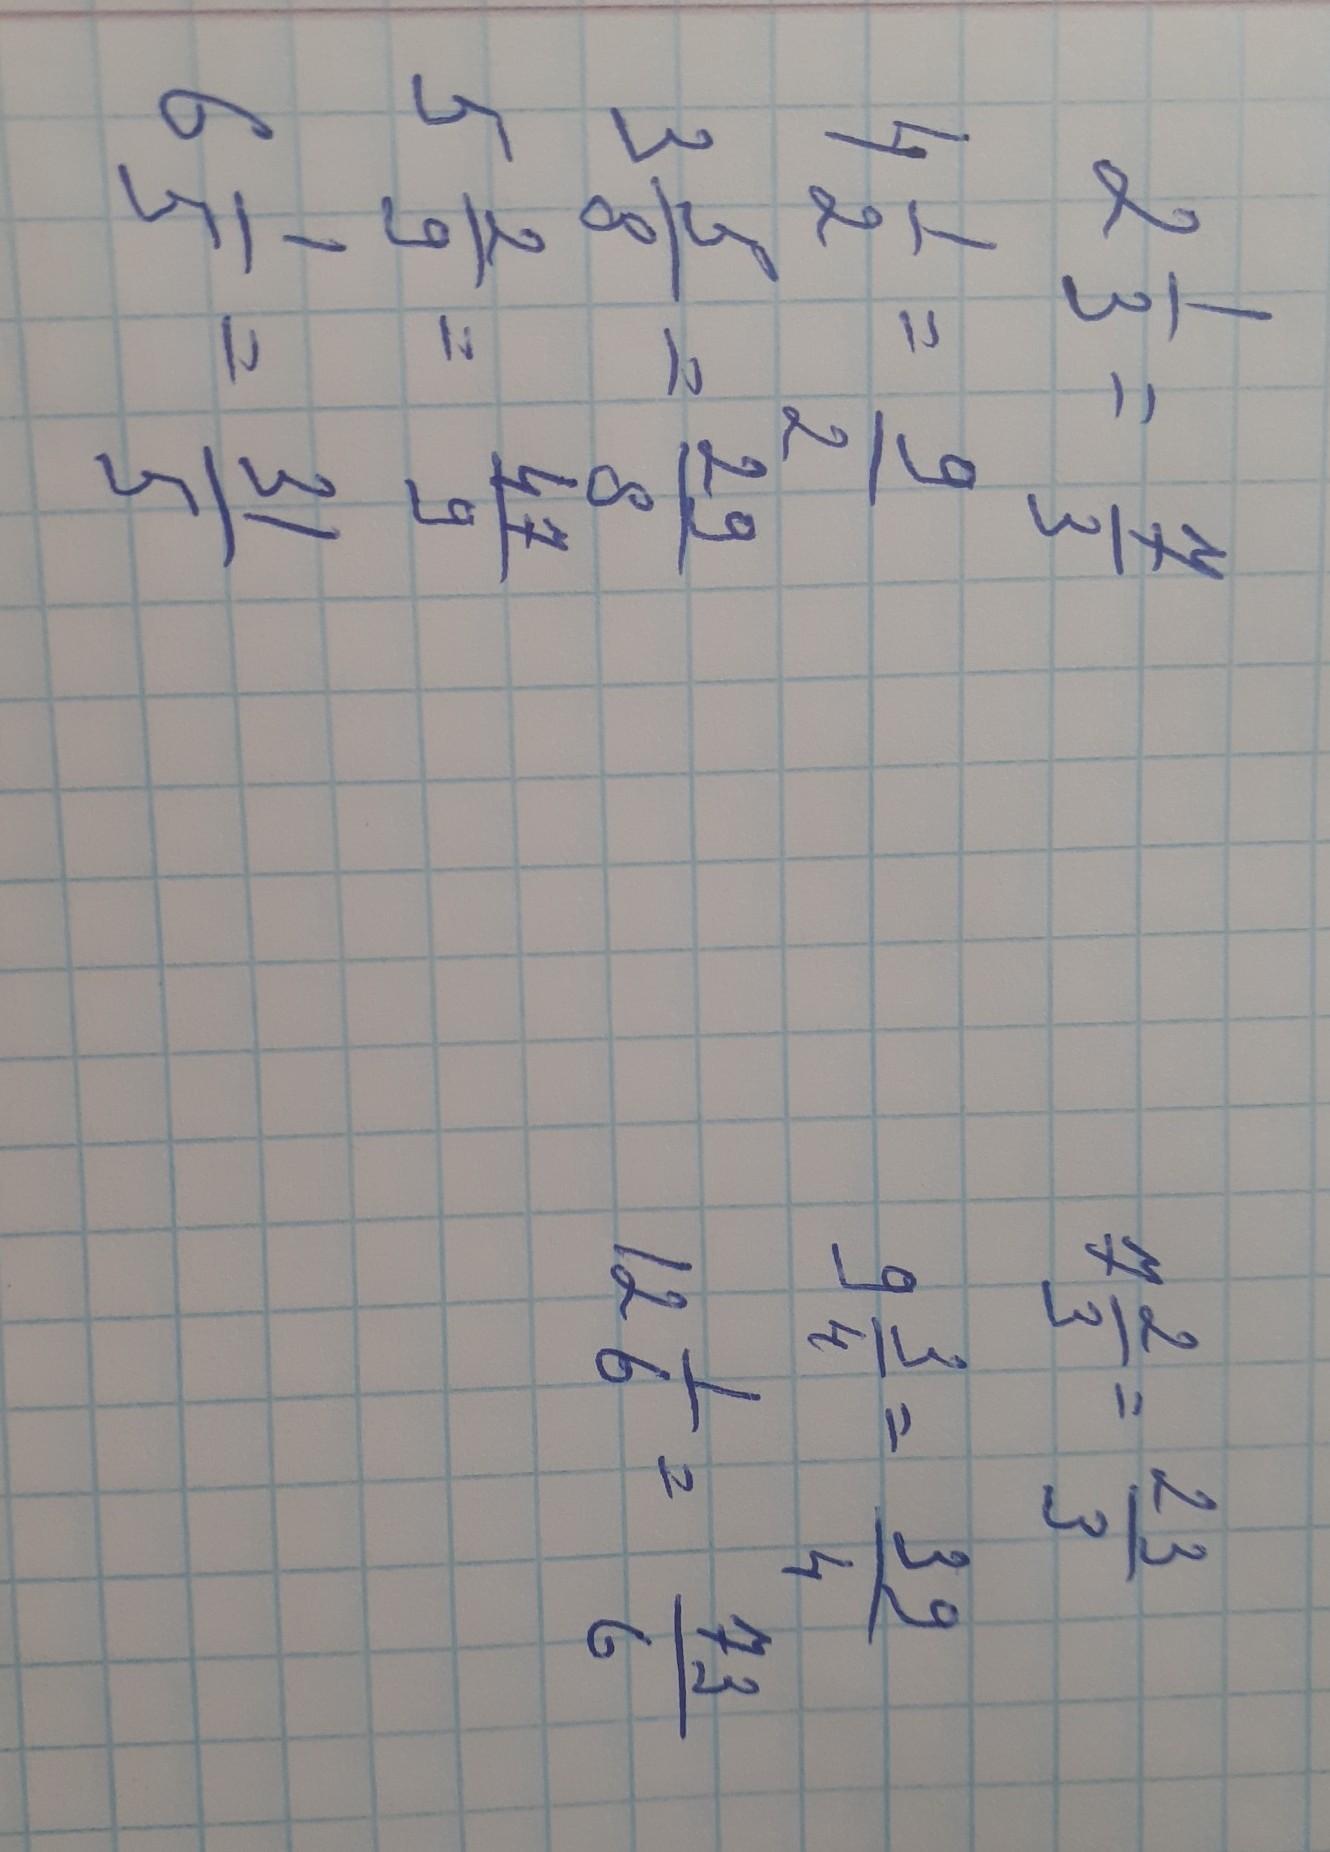 2 1/3 = 7/3
4 1/2 = 9/2
3 5/8 = 29/8
5 2/9 = 47/9
6 1/5 = 31/5
7 2/3 = 23/3
9 3/4 = 39/4
12 1/6 = 73/6